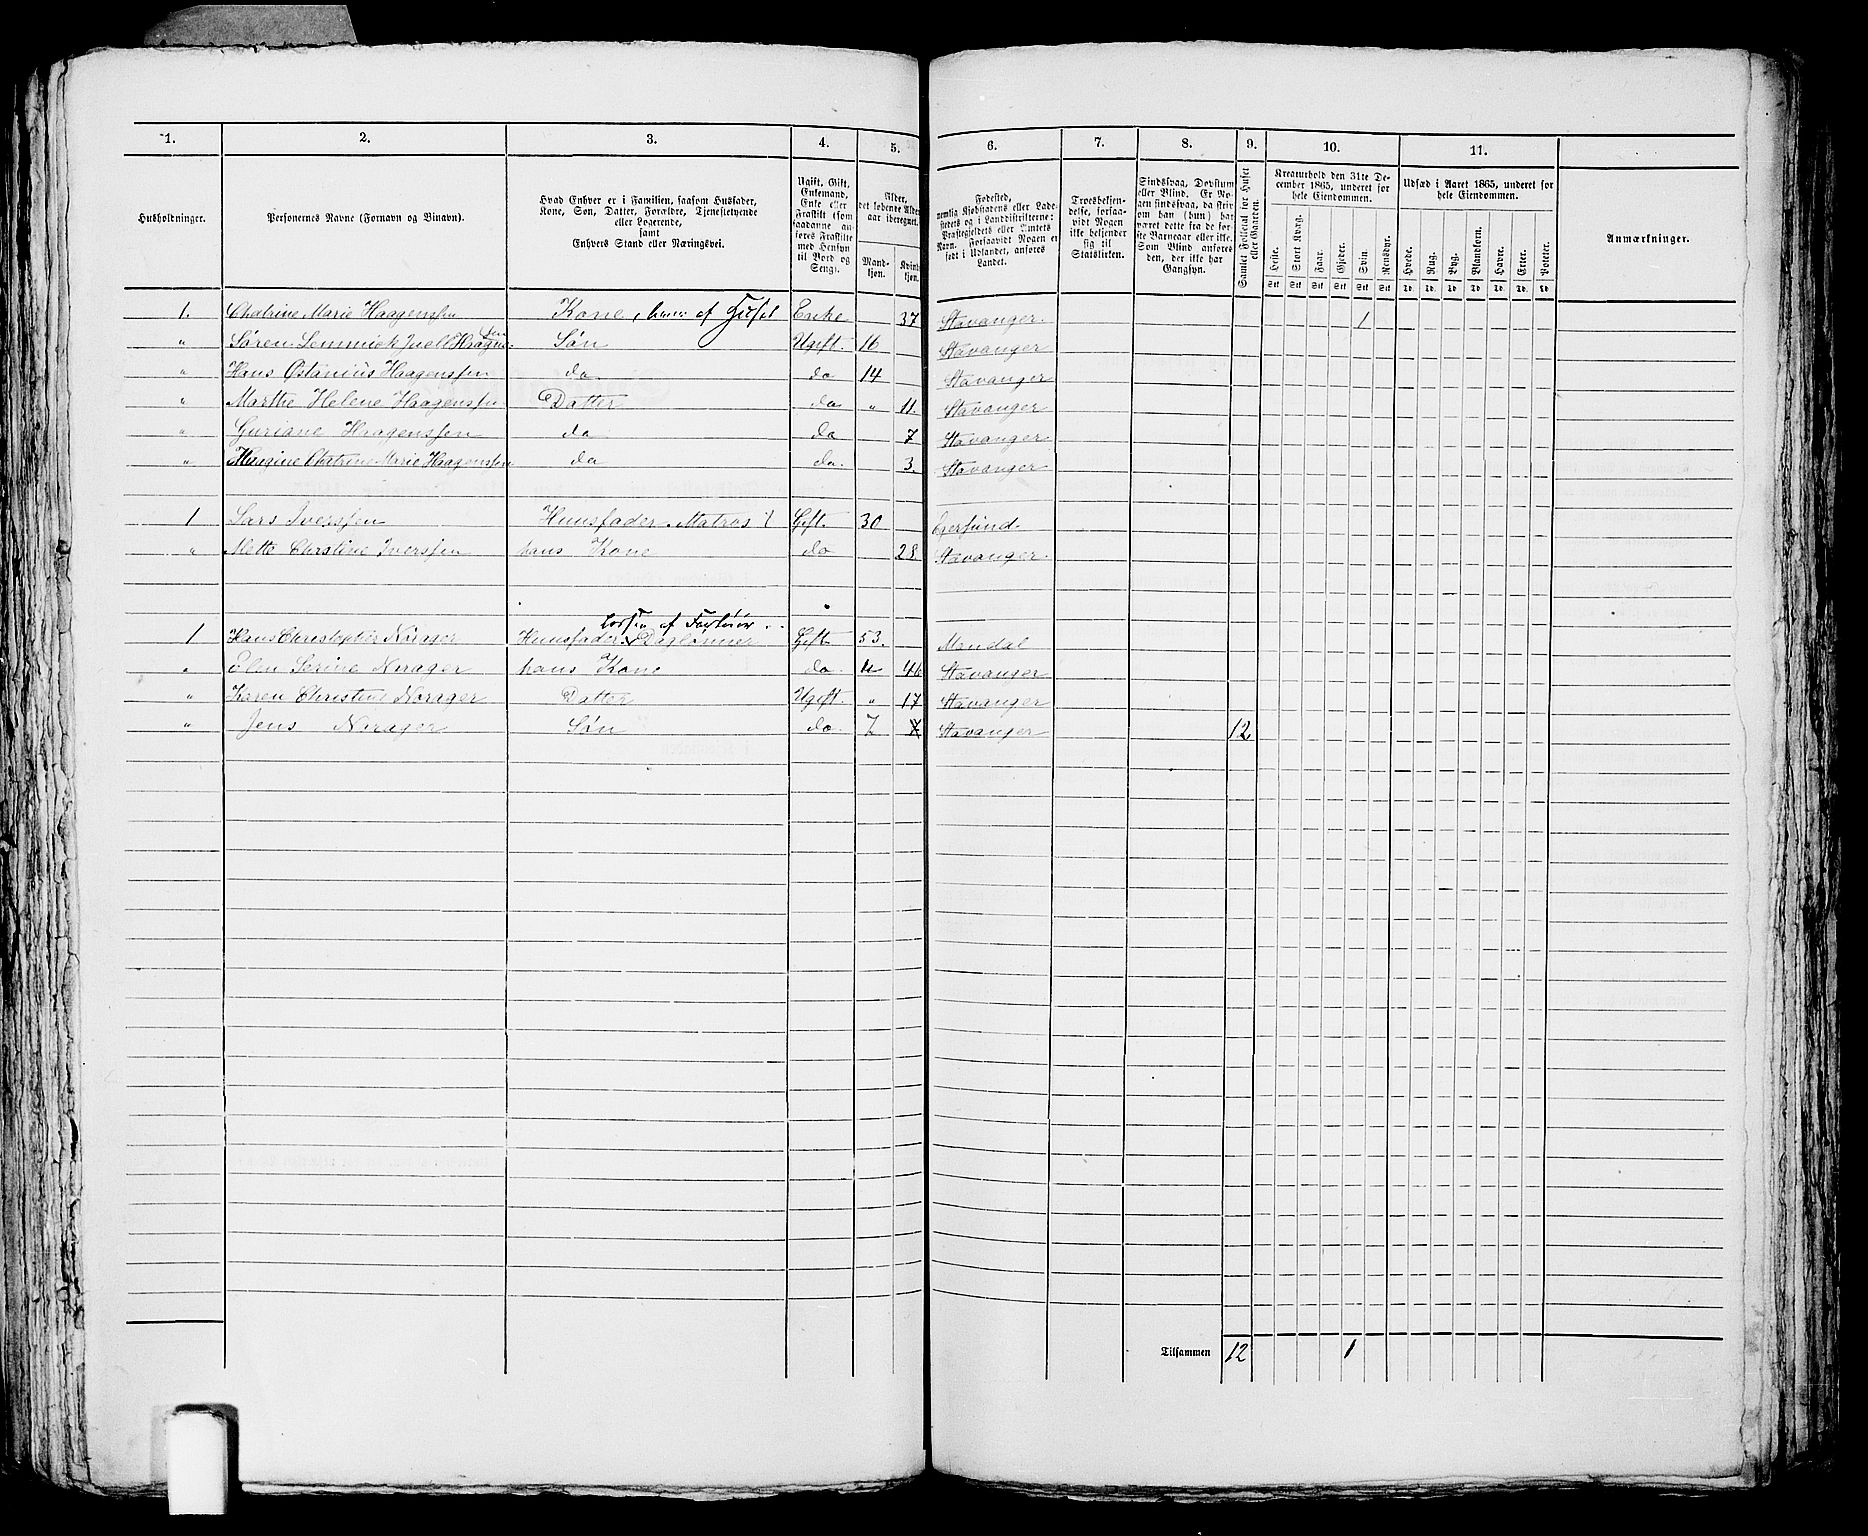 1. 2. 3. 4. 5. 6. 7. 8. 9. 10. 11.
Husholdninger.
Personernes Navne (Fornavn og Binavn).
Hvad Enhver er i Familien, saasom Husfader,
Kone, Søn, Datter, Forældre, Tjenestetyende
eller Logerende,
samt
Enhvers Stand eller Næringsvei.
Ugift, Gift,
Enkemand,
Enke eller
Fraskilt (som
saadanne an-
føres Fraskilte
med Hensyn
til Bord og
Seng).
Alder,
det løbende Alders-
aar iberegnet.
Mand-
kjøn.
Kvinde-
kjøn.
Fødested,
nemlig Kjøbstadens eller Lade-
stedets og i Landdistrikterne:
Præstegjeldets eller Annexets
Navn. Forsaavidt Nogen er
født i Udlandet, anføres
Landet.
Troesbekjen-
delse, forsaa-
vidt Nogen
ikke bekjender
sig til
Statskirken.
Sindssvag, Døvstum
eller Blind. Er No-
gen sindssvag, da skriv
om han (hun) har
været dette fra de før-
ste Barneaar eller ikke.
Som Blind anføres
den, der ikke har
Gangsyn.
Samlet Folketal for Huset
eller Gaarden.
Kreaturhold den 31te De-
cember 1865, underet for
hele Eiendommen.
Heste. Stort Kvæg. Faar. Gjeder. Svin. Rensdyr.
Stk Stk Stk Stk Stk Stk
Udsæd i Aaret 1865, underet for
hele Eiendommen.
Hvede. Rug. Byg. Blandkorn. Havre. Erter. Poteter.
Td. Td. Td. Td. Td. Td. Td
Anmærkninger.
1. Chatrine Marie Haagenssen Kone, af Huset Enke 37 Stavanger. 1
" Søren Juell Haagens- Søn Ugift. 16 Stavanger
sen
" Hans Haagenssen do do 14 Stavanger
" Marthe Helene Haagenssen Datter do " 11. Stavanger
" Guriane Haagenssen do do 7 Stavanger
" Chatrine Marie Haagenssen do do. 3. Stavanger
1 Lars Iverssen Huusfader Matros Gift. 30 Egersund.
" Mette Christine Iverssen hans Kone do 28. Stavanger.
af
1 Hans Christopher Norager Huusfader Daglønner Gift. 53. Mandal
" Elen Serine Norager hans Kone do. " 46 Stavanger
" Karen Christine Norager Datter Ugift. " 17 Stavanger
" Jens Norager Søn do. 7 Stavanger 12
Tilsammen 12 1